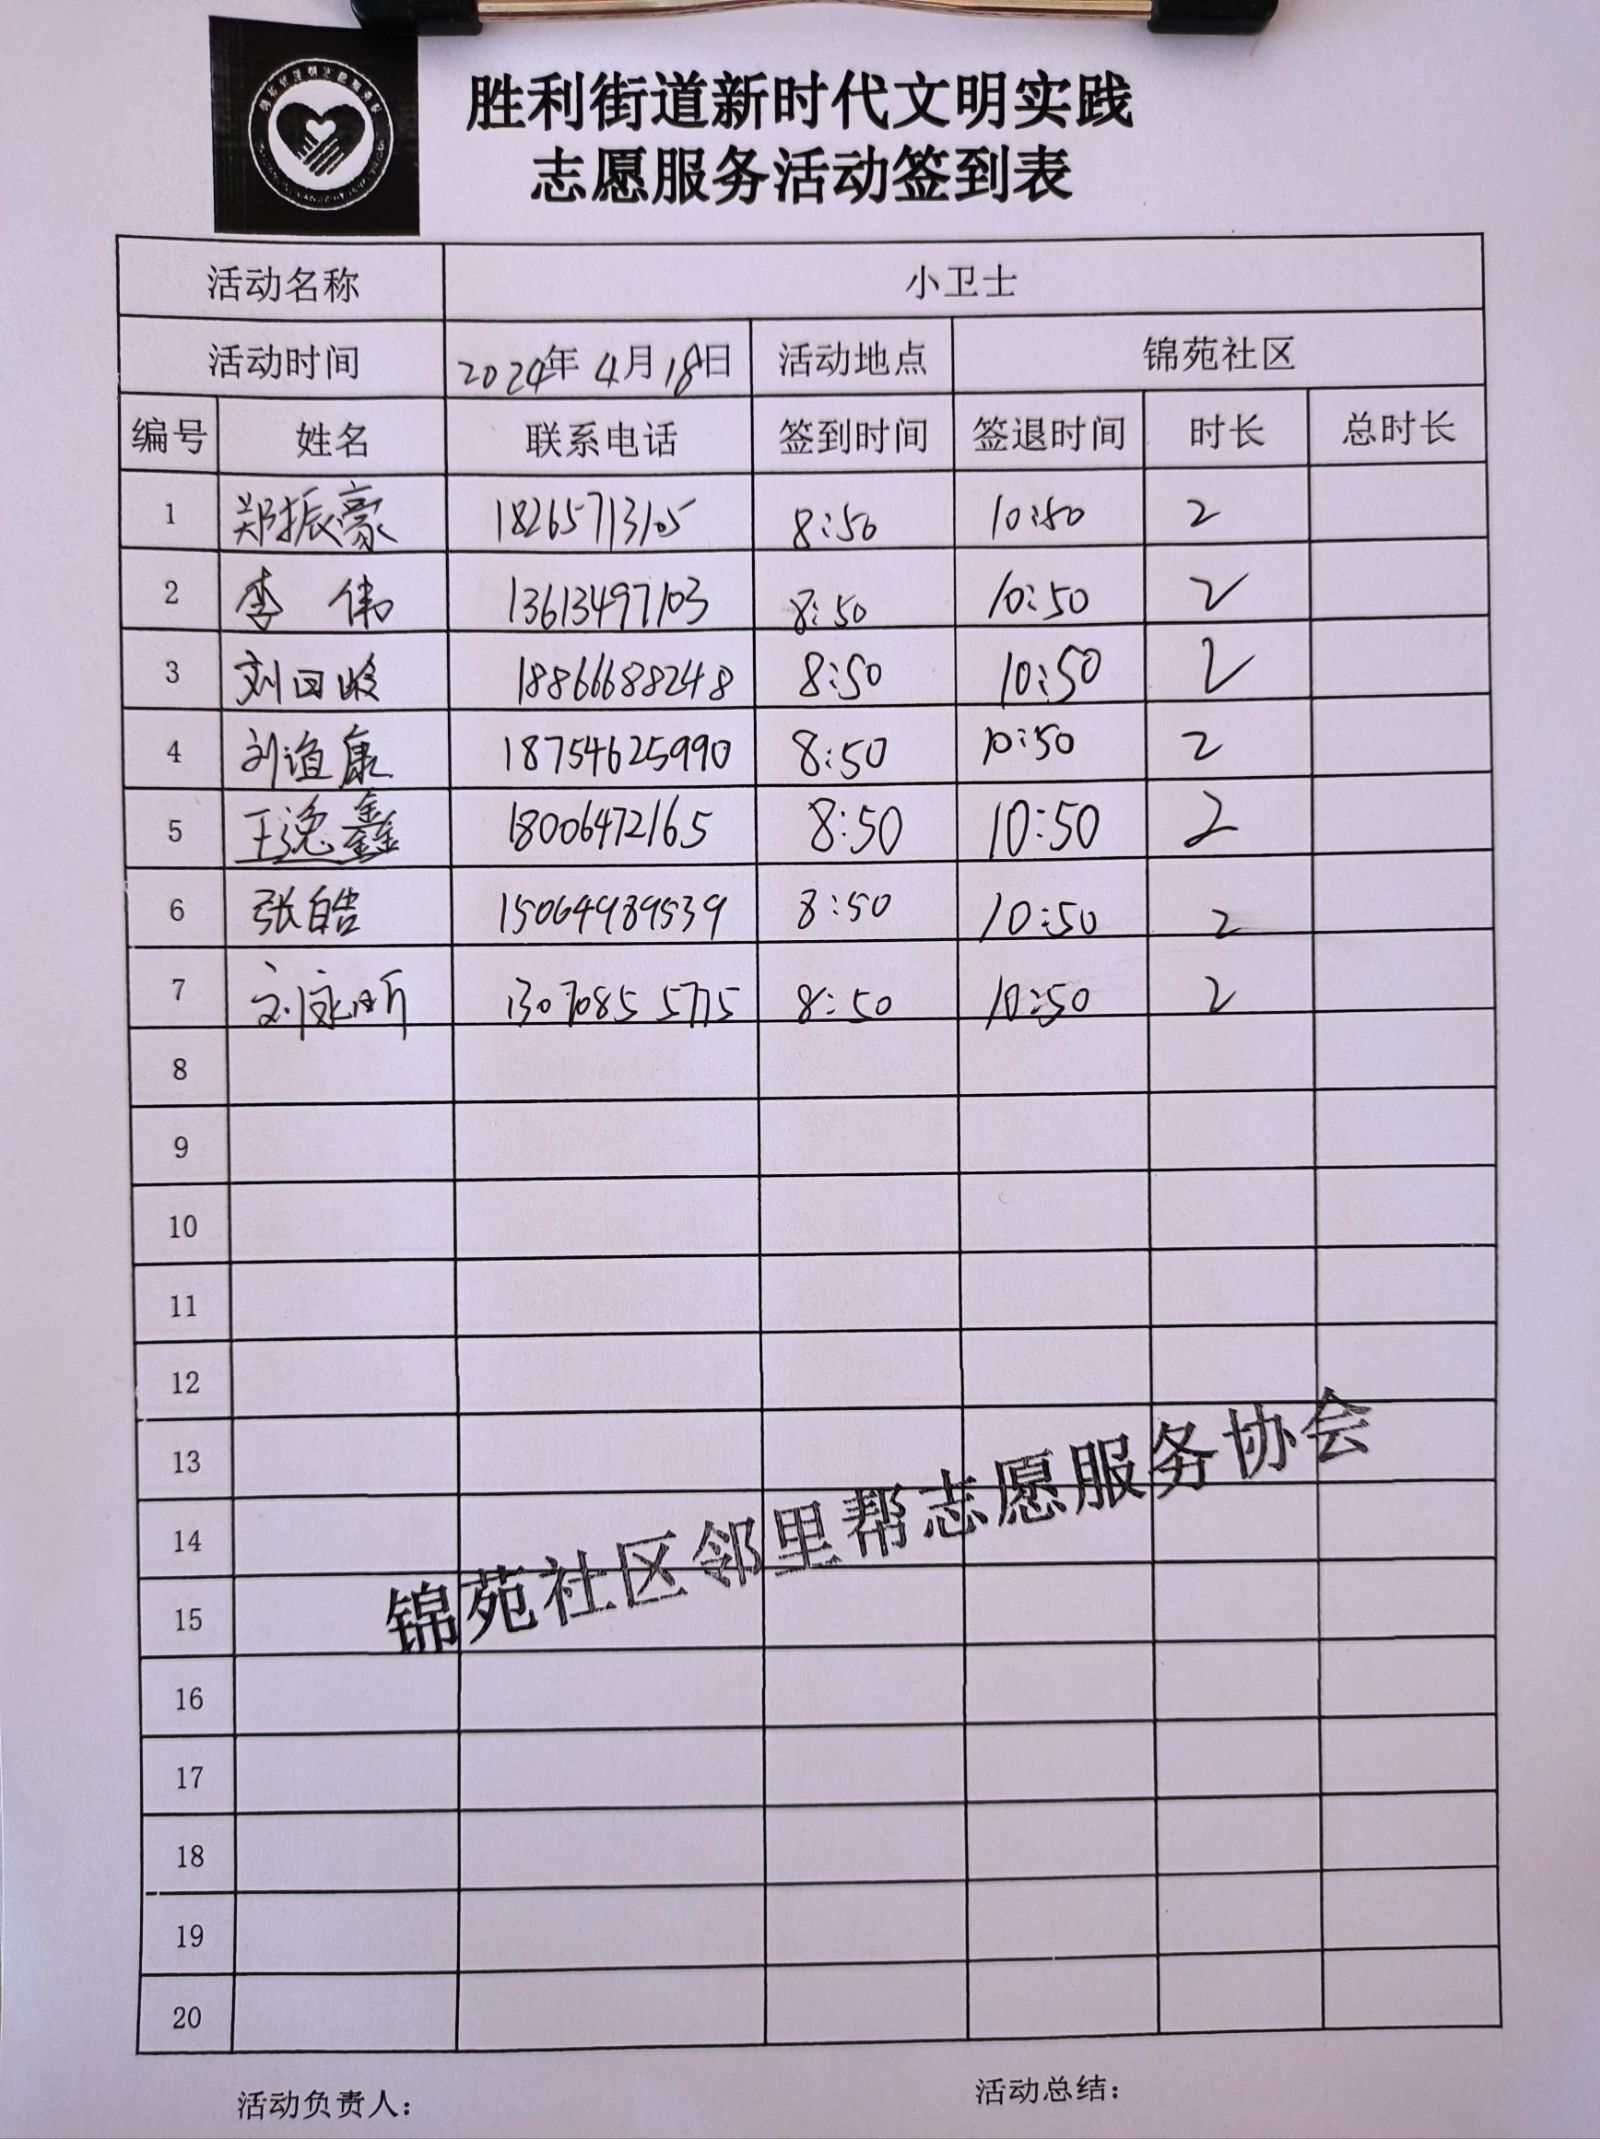 胜利街道新时代文明实践
志愿服务活动签到表
活动名称 小卫士
活动时间 2024年 4月18日 活动地点 锦苑社区
编号 姓名 联系电话 签到时间 签退时间 时长 总时长
1 郑振豪 18265713105 8:50 10:50 2
2 李 伟 13613497103 8:50 10:50 2
3 刘 18866688248 8:50 10:50 2
4 刘道康 18754625990 8:50 10:50 2
5 王逸鑫 18006472165 8:50 10:50 2
6 张皓 15064989539 8:50 10:50 2
7 刘 13070855775 8:50 10:50 2
8
9
10
11
12
13
14
15
16
17
18
19
20
锦苑社区邻里帮志愿服务协会
活动负责人： 活动总结：